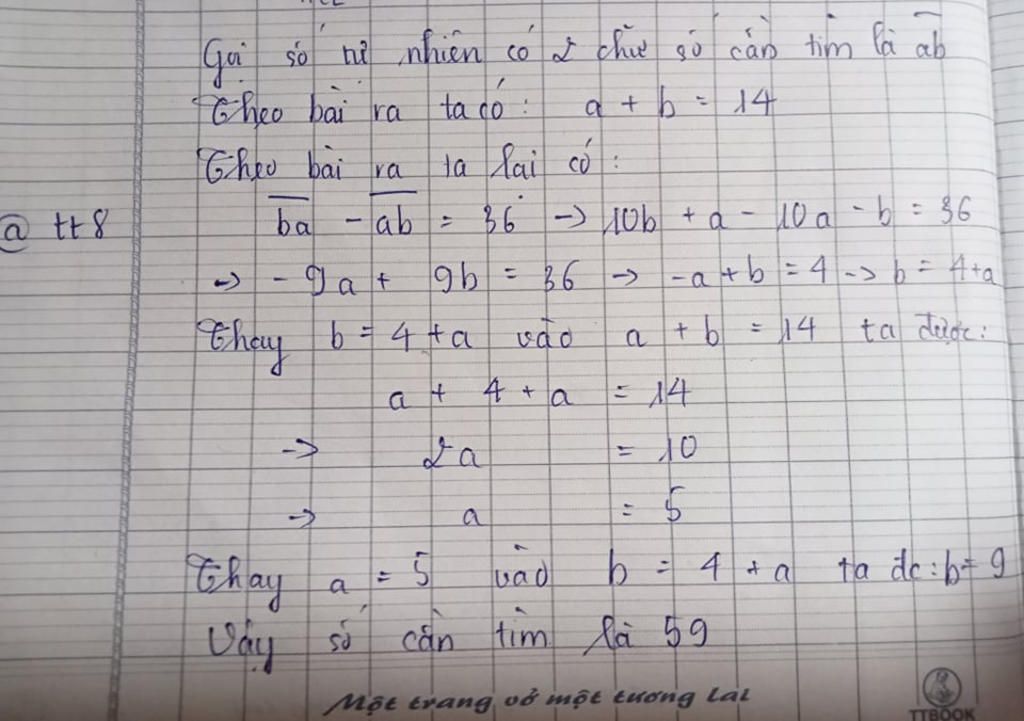 Gọi số tự nhiên có 2 chữ số cần tìm là ab
Theo bài ra ta có: a + b = 14
Theo bài ra ta lại có:
@ tt8
ba - ab = 36 -> 10b + a - 10a - b = 36
-> - 9a + 9b = 36 -> -a + b = 4 -> b = 4+a
Thay b = 4 + a vào a + b = 14 ta được:
a + 4 + a = 14
-> 2a = 10
-> a = 5
Thay a = 5 vào b = 4 + a ta đc: b = 9
Vậy số cần tìm là 59
Một trang vở một tương lai
TTBOOK